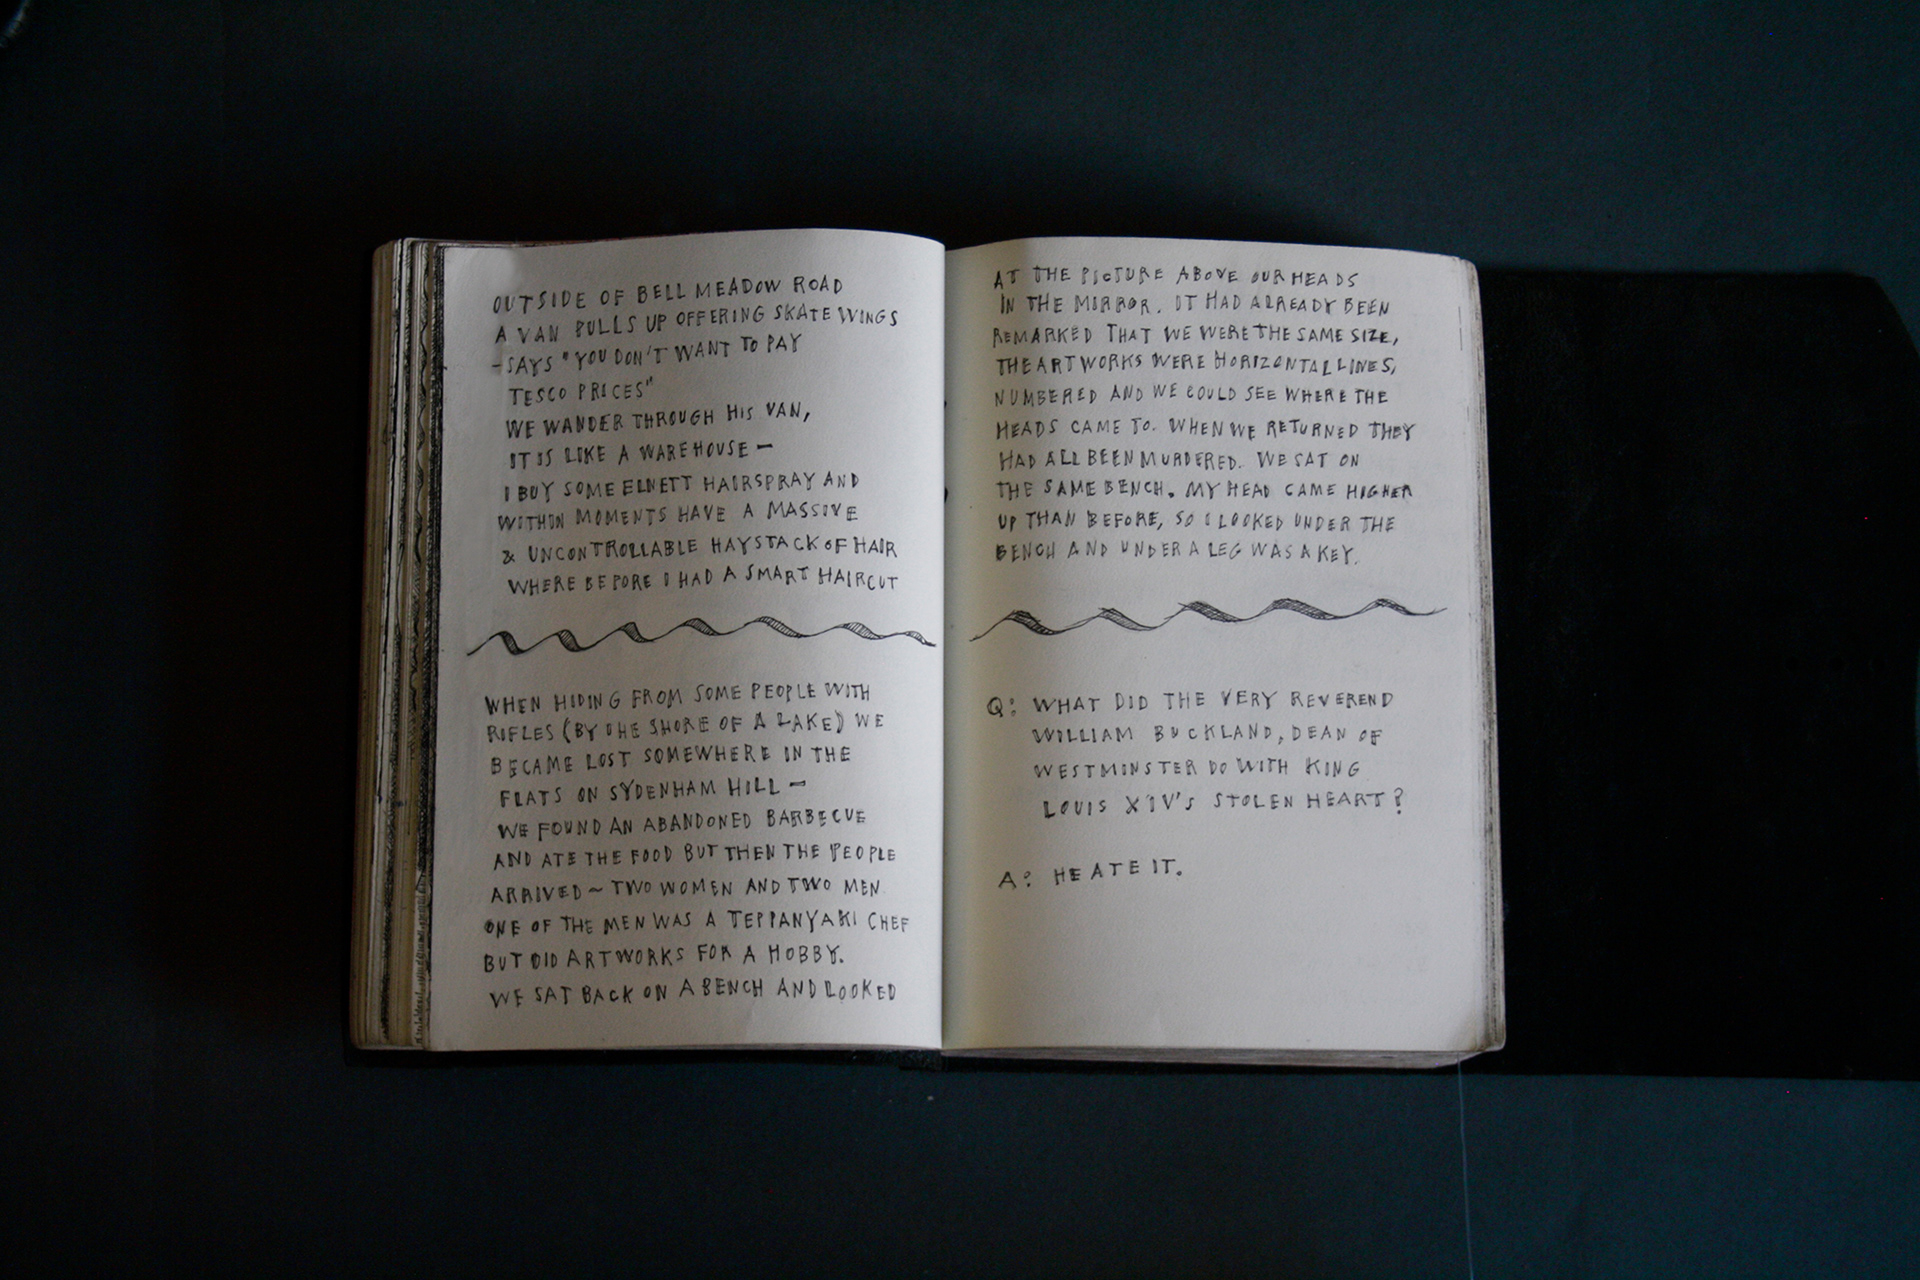 OUTSIDE OF BELL MEADOW ROAD
A VAN PULLS UP OFFERING SKATE WINGS
- SAYS "YOU DON'T WANT TO PAY
TESCO PRICES"
WE WANDER THROUGH HIS VAN,
IT IS LIKE A WAREHOUSE -
I BUY SOME ELNETT HAIRSPRAY AND
WITHIN MOMENTS HAVE A MASSIVE
& UNCONTROLLABLE HAYSTACK OF HAIR
WHERE BEFORE I HAD A SMART HAIRCUT
WHEN HIDING FROM SOME PEOPLE WITH
RIFLES (BY THE SHORE OF A LAKE) WE
BECAME LOST SOMEWHERE IN THE
FLATS ON SYDENHAM HILL -
WE FOUND AN ABANDONED BARBECUE
AND ATE THE FOOD BUT THEN THE PEOPLE
ARRIVED ~ TWO WOMEN AND TWO MEN
ONE OF THE MEN WAS A TEPPANYAKI CHEF
BUT DID ARTWORKS FOR A HOBBY.
WE SAT BACK ON A BENCH AND LOOKED
AT THE PICTURE ABOVE OUR HEADS
IN THE MIRROR. IT HAD ALREADY BEEN
REMARKED THAT WE WERE THE SAME SIZE,
THE ARTWORKS WERE HORIZONTAL LINES,
NUMBERED AND WE COULD SEE WHERE THE
HEADS CAME TO. WHEN WE RETURNED THEY
HAD ALL BEEN MURDERED. WE SAT ON
THE SAME BENCH. MY HEAD CAME HIGHER
UP THAN BEFORE, SO I LOOKED UNDER THE
BENCH AND UNDER A LEG WAS A KEY.
Q: WHAT DID THE VERY REVEREND
WILLIAM BUCKLAND, DEAN OF
WESTMINSTER DO WITH KING
LOUIS XIV'S STOLEN HEART?
A: HE ATE IT.